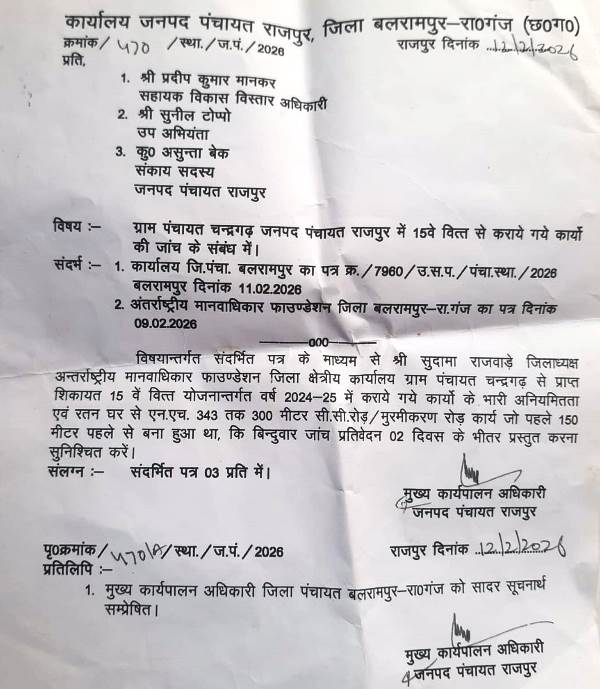 कार्यालय जनपद पंचायत राजपुर, जिला बलरामपुर–रा0गंज (छ0ग0)
क्रमांक/ 470 /स्था./ज.पं./2026 राजपुर दिनांक 12/2/2026
प्रति,
1. श्री प्रदीप कुमार मानकर
सहायक विकास विस्तार अधिकारी
2. श्री सुनील टोप्पो
उप अभियंता
3. कु0 असुन्ता बेक
संकाय सदस्य
जनपद पंचायत राजपुर
विषय :– ग्राम पंचायत चन्द्रगढ़ जनपद पंचायत राजपुर में 15वे वित्त से कराये गये कार्यो
की जांच के संबंध में।
संदर्भ :– 1. कार्यालय जि.पंचा. बलरामपुर का पत्र क्र./7960/उ.स.प./पंचा.स्था./2026
बलरामपुर दिनांक 11.02.2026
2. अंतर्राष्ट्रीय मानवाधिकार फाउण्डेशन जिला बलरामपुर–रा.गंज का पत्र दिनांक
09.02.2026
———000———
विषयान्तर्गत संदर्भित पत्र के माध्यम से श्री सुदामा राजवाड़े जिलाध्यक्ष
अन्तर्राष्ट्रीय मानवाधिकार फाउण्डेशन जिला क्षेत्रीय कार्यालय ग्राम पंचायत चन्द्रगढ़ से प्राप्त
शिकायत 15 वें वित्त योजनान्तर्गत वर्ष 2024–25 में कराये गये कार्यो के भारी अनियमितता
एवं रतन घर से एन.एच. 343 तक 300 मीटर सी.सी.रोड़/मुरमीकरण रोड़ कार्य जो पहले 150
मीटर पहले से बना हुआ था, कि बिन्दुवार जांच प्रतिवेदन 02 दिवस के भीतर प्रस्तुत करना
सुनिश्चित करें।
संलग्न :– संदर्भित पत्र 03 प्रति में।
मुख्य कार्यपालन अधिकारी
जनपद पंचायत राजपुर
पृ0क्रमांक/ 470/A /स्था./ज.पं./2026 राजपुर दिनांक 12/2/2026
प्रतिलिपि :–
1. मुख्य कार्यपालन अधिकारी जिला पंचायत बलरामपुर–रा0गंज को सादर सूचनार्थ
सम्प्रेषित।
मुख्य कार्यपालन अधिकारी
जनपद पंचायत राजपुर